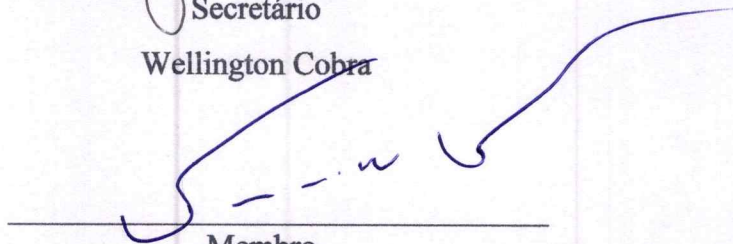 Secretário
Wellington Cobra
Membro